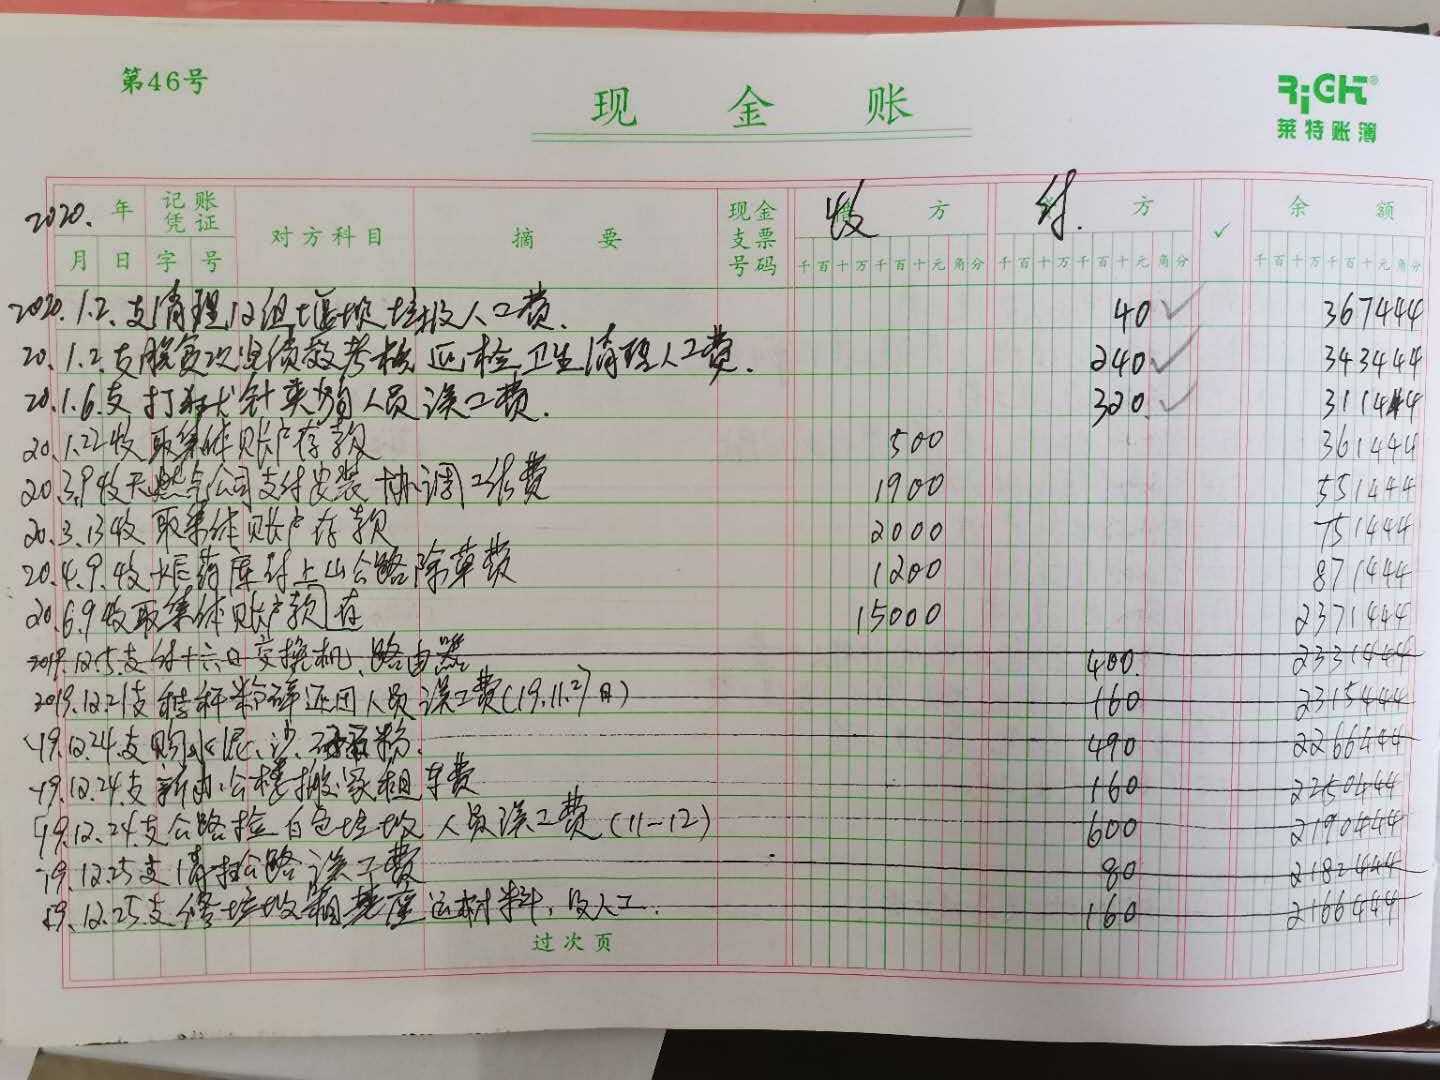 第46号
现 金 账
RiCH®
莱特账簿
2020. 年 记账凭证 对方科目 摘 要 现金支票号码 收 方 付. 方 ✓ 余 额
月 日 字 号 千百十万千百十元角分 千百十万千百十元角分 千百十万千百十元角分
2020.1.2.支清理12组堰坝垃圾人工费. 40 ✓ 367444
20.1.2.支脱贫攻坚绩效考核迎检卫生清理人工费. 240 ✓ 343444
20.1.6.支打 针 人员误工费. 320 ✓ 311444
20.1.22收取集体账户存款 500 361444
20.3.9收天燃气公司支付安装协调工作费 1900 551444
20.3.13收取集体账户存款 2000 751444
20.4.9.收 库村上山公路除草费 1200 871444
20.6.9收取集体账户款 存 15000 2371444
2019.12.5.支付十六口交换机、路由器 400. 2331444
2019.12.21支秸秆粉碎还田人员误工费(19.11.27日) 160 2315444
19.12.24.支购水泥、沙、 粉. 490 2266444
19.12.24.支新办公楼搬家租车费 160 2250444
19.12.24.支公路捡白色垃圾人员误工费(11-12) 600 2190444
19.12.25支清扫公路误工费 80 2182444
19.12.25.支修垃圾箱基座运材料,及人工. 160 2166444
过次页